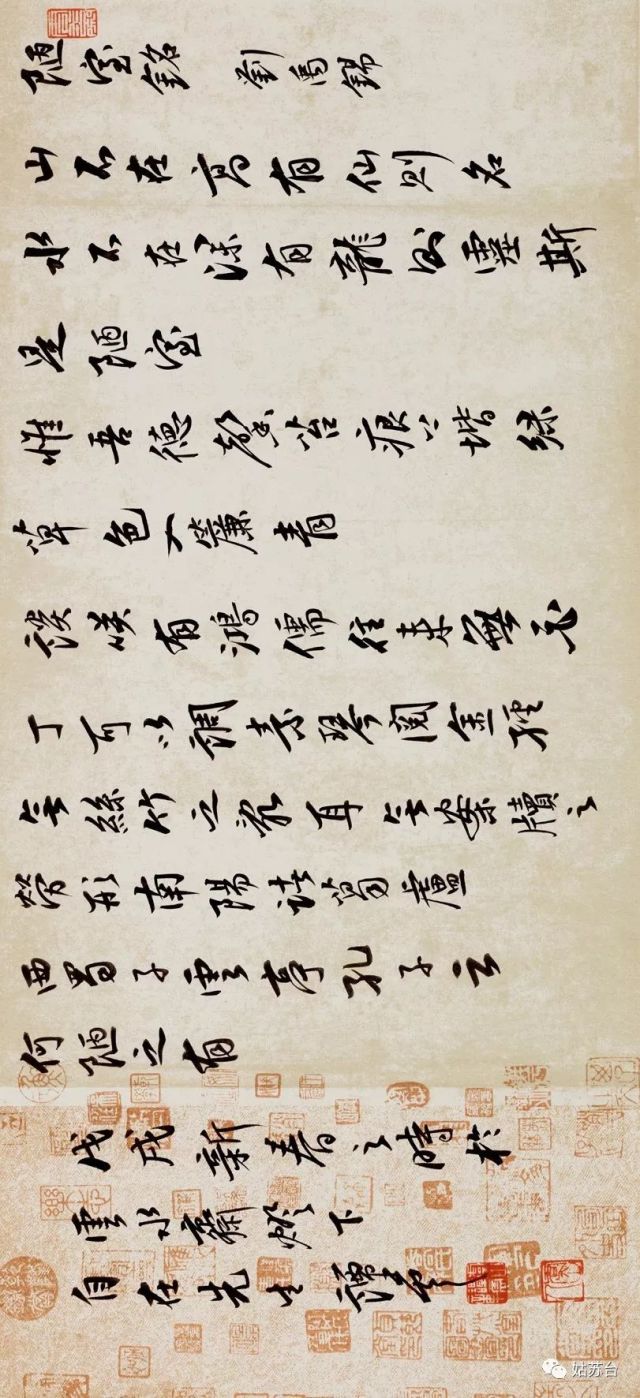 陋室銘 劉禹錫
山不在高有仙則名
水不在深有龍則靈斯
是陋室
惟吾德馨苔痕上堦綠
草色入簾青
談咲有鴻儒往來無白
丁可以調素琴閱金經
无絲竹之亂耳无案牘之
勞形南陽諸葛廬
西蜀子雲亭孔子云
何陋之有
戊戌新春之時於
雲水齋燈下
自在先生譚
姑苏台